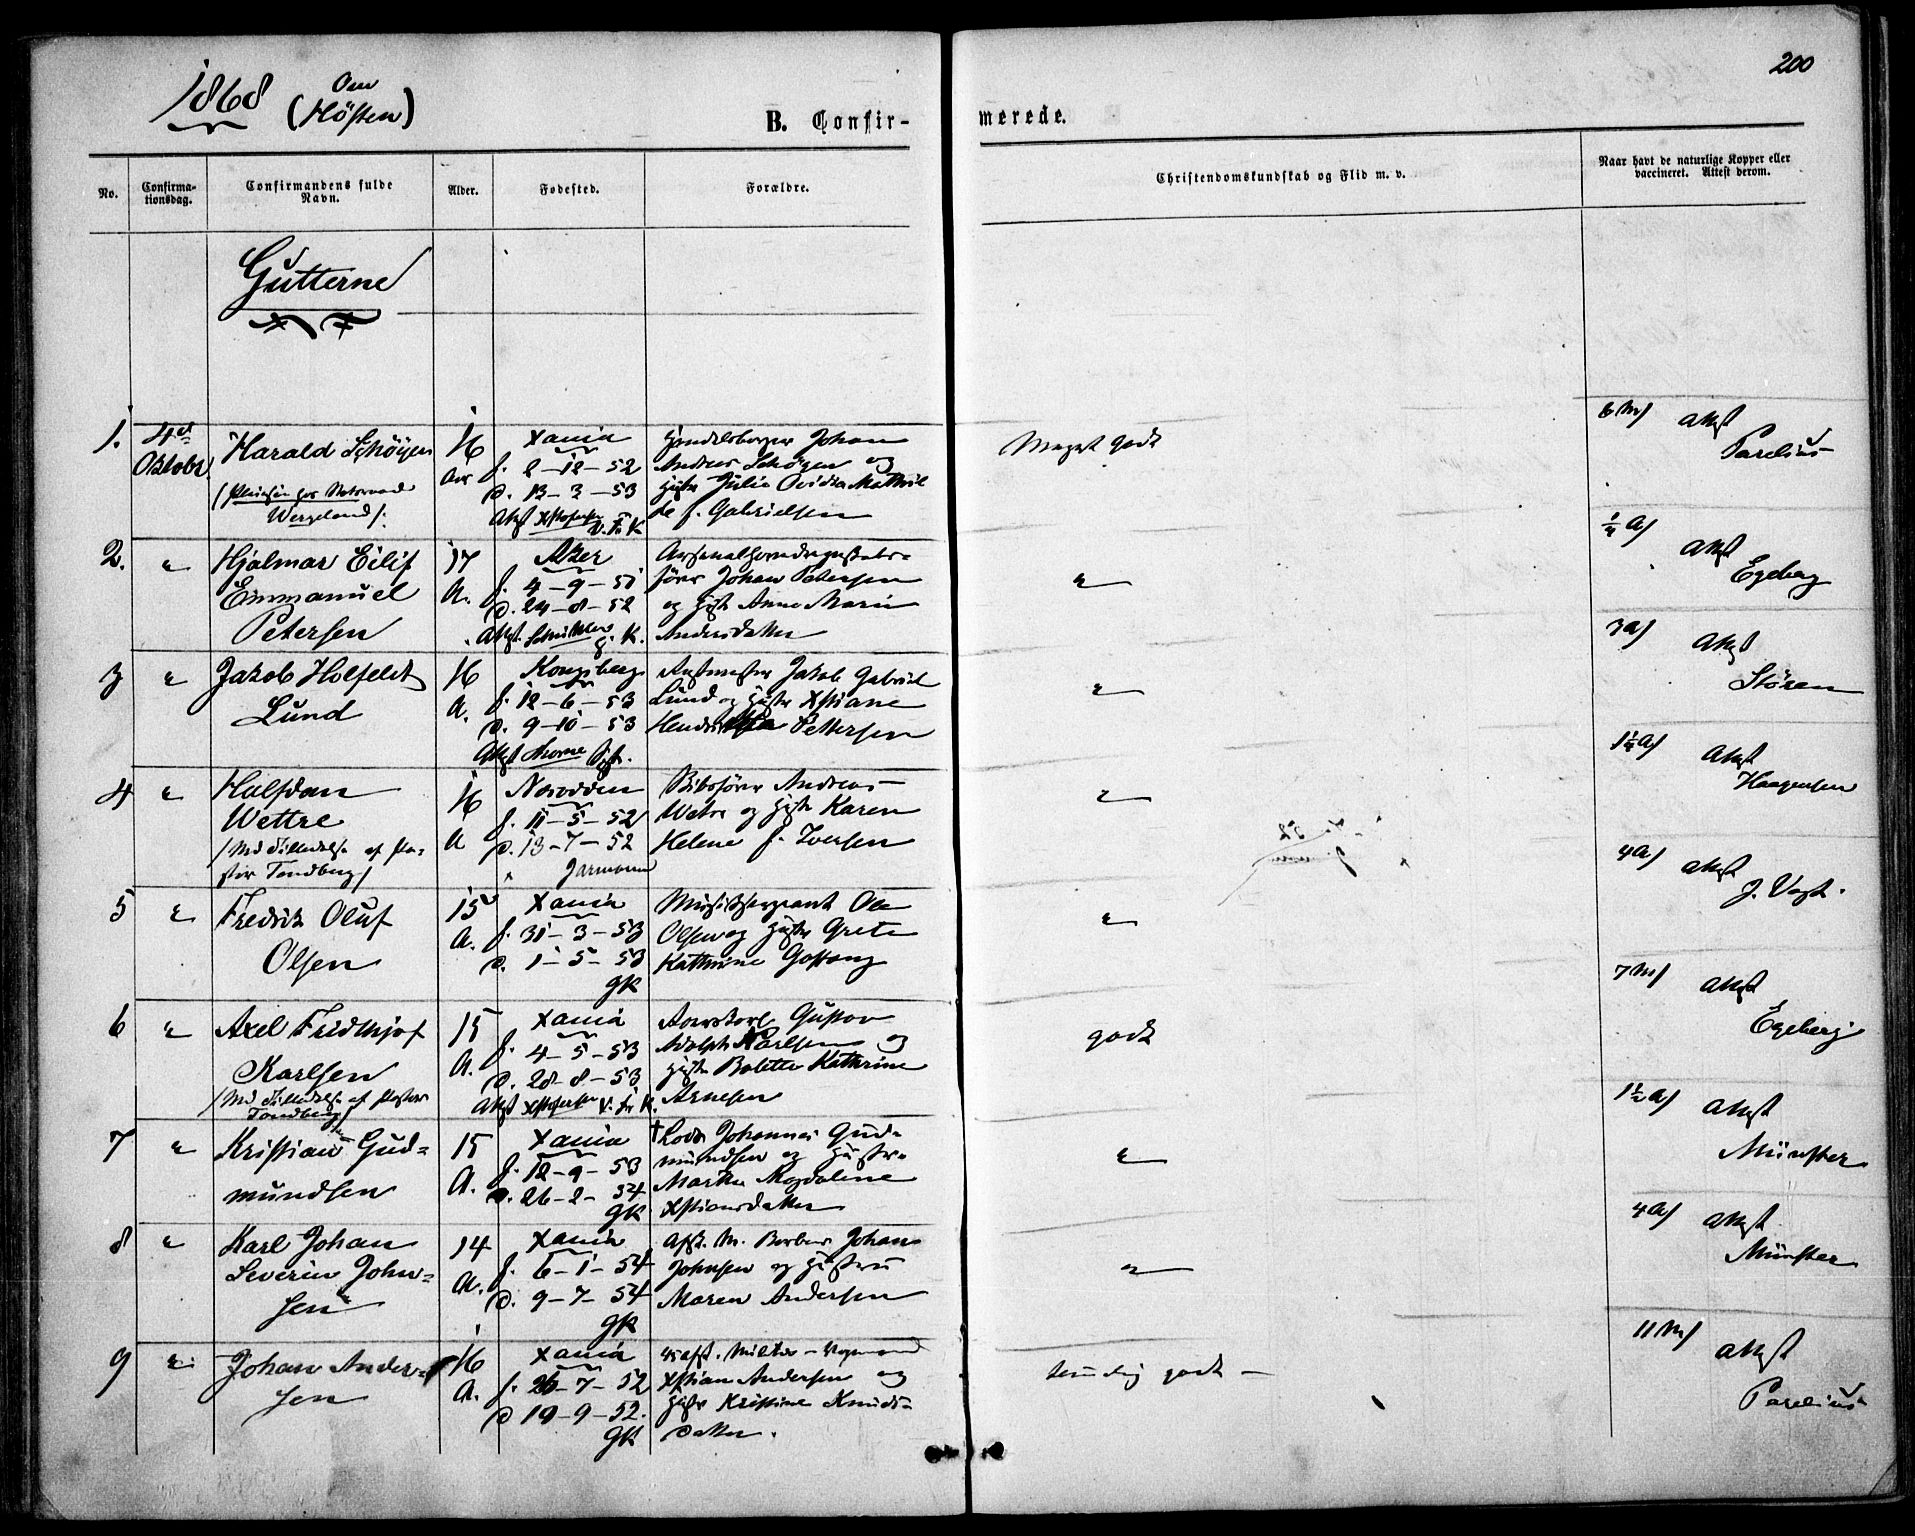 200
1868 (Om
Høsten)
B. Confirmerede.
No.
Confirmationsdag.
Confirmandens fulde Navn.
Alder.
Fødested.
Forældre.
Christendomskundskab og Flid m. v.
Naar havt de naturlige Kopper eller vaccineret. Attest derom.
Gutterne
1.
4de Oktober
Harald Schøyen
Wergeland
16 Aar
Xania
f. 2-12-52
d. 13-3-53
Johan
Andreas Schøyen og
Hustr Julie Ovidia Mathil
de f. Gabrielsen
Meget godt
6 M/ Attest
Parelius
2.
"
Hjalmar Eilif
Emmanuel
Petersen
17 A.
Aker
f. 4-9-51
d. 24-8-52
Johan Petersen
og Hustr Anne Marie
Andersdatter
"
½ A/ Attest
Egeberg
3
"
Jakob Holfeldt
Lund
16 A.
Kongsberg
f. 12-6-53
d. 9-10-53
Jakob Gabriel
Lund og Hustr Xstiane
Pettersen
"
3 A/ Attest
Støren
4
"
Halfdan
Wettre
/Med Tilladelse af Pa-
stor Tandberg/
16 A
Næsodden
f. 11-5-52
d. 13-7-52
Jarmann
Andreas
Wetre og Hustr Karen
Helene f. Iversen
"
1½ A/ Attest
Haagensen
5
"
Fredrik Oluf
Olsen
15 A.
Xania
f. 31-3-53
d. 1-5-53
GK
Ole
Olsen og Hustr Grete
Kathrine
"
4 A/ Attest
J. Vogt.
6
"
Axel Fridthjof
Karlsen
/Med Tilladelse af Pastor
Tandberg/
15 A.
Xania
f. 4-5-53
d. 28-8-53
Gustav
Adolph Karlsen og
Hustr Bolette Kathrine
Arnesen
godt
7 M/ Attest
Egeberg
7
"
Kristian Gud=
mundsen
15 A.
Xania
f. 12-9-53
d. 26-2-54
GK
† Lods Johannes Gud=
mundsen og Hustr
Marthe Magdalene
Xstiansdatter
"
1½ A/ Attest
Münster
8
"
Karl Johan
Severin John=
sen
14 A.
Xania
f. 6-1-54
d. 9-7-54
GK
Johan
Johnsen og Hustru
Maren Andersen
"
4 A/ Attest
Münster
9
"
Johan Ander=
sen
16 A.
Xania
f. 26-7-52
d 19-9-52.
GK
Xstian Andersen og
Hustr Kristine Knuds=
datter.
temmelig godt
11 M/ Attest
Parelius